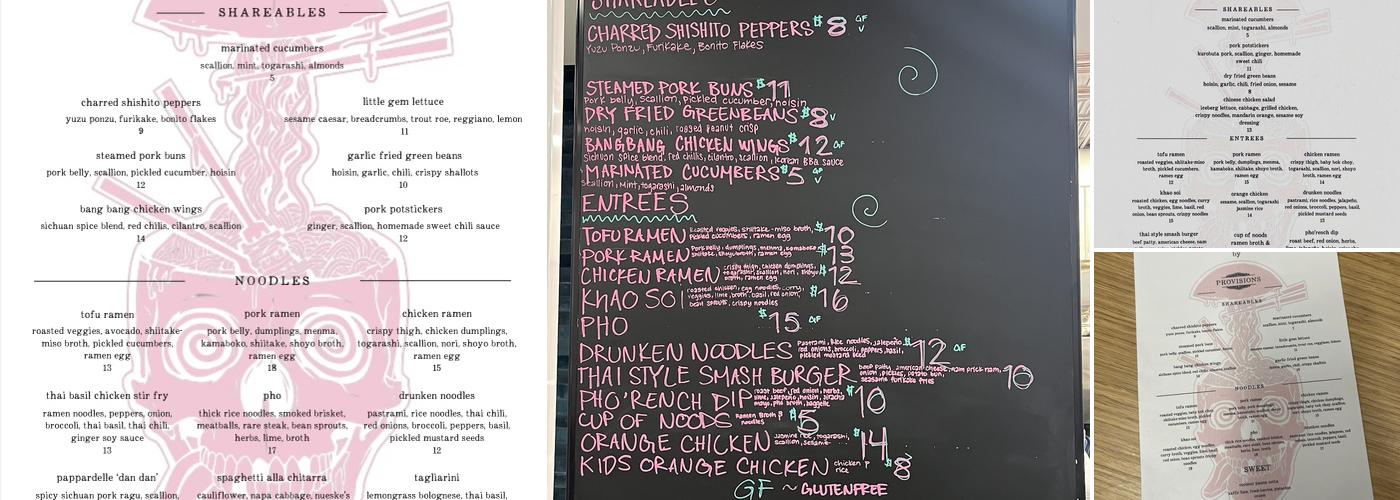 SHAREABLES
marinated cucumbers
scallion, mint, togarashi, almonds
5
charred shishito peppers
yuzu ponzu, furikake, bonito flakes
9
little gem lettuce
sesame caesar, breadcrumbs, trout roe, reggiano, lemon
11
steamed pork buns
pork belly, scallion, pickled cucumber, hoisin
12
garlic fried green beans
hoisin, garlic, chili, crispy shallots
10
bang bang chicken wings
sichuan spice blend, red chilis, cilantro, scallion
14
pork potstickers
ginger, scallion, homemade sweet chili sauce
12
NOODLES
tofu ramen
roasted veggies, avocado, shiitake-
miso broth, pickled cucumbers,
ramen egg
13
pork ramen
pork belly, dumplings, menma,
kamaboko, shiitake, shoyo broth,
ramen egg
18
chicken ramen
crispy thigh, chicken dumplings,
togarashi, scallion, nori, shoyo broth,
ramen egg
15
thai basil chicken stir fry
ramen noodles, peppers, onion,
broccoli, thai basil, thai chili,
ginger soy sauce
13
pho
thick rice noodles, smoked brisket,
meatballs, rare steak, bean sprouts,
herbs, lime, broth
17
drunken noodles
pastrami, rice noodles, thai chili,
red onions, broccoli, peppers, basil,
pickled mustard seeds
12
pappardelle 'dan dan'
spicy sichuan pork ragu, scallion,
spaghetti alla chitarra
cauliflower, napa cabbage, nueske's
tagliarini
lemongrass bolognese, thai basil,
CHARRED SHISHITO PEPPERS $8 GF V
Yuzu Ponzu, Furikake, Bonito Flakes
STEAMED PORK BUNS $11
Pork belly, scallion, pickled cucumber, hoisin
DRY FRIED GREENBEANS $8 V
hoisin, garlic, chili, rogged peanut crisp
BANG BANG CHICKEN WINGS $12 GF
Sichuan spice blend, red chilis, cilantro, scallion, Korean BBQ sauce
MARINATED CUCUMBERS $5 GF V
scallion, mint, togarashi, almonds
ENTREES
TOFU RAMEN Roasted veggies, shiitake-miso broth, $10
Pickled cucumbers, ramen egg
PORK RAMEN Pork belly, dumplings, menma, kamaboko $13
shiitake, shoyu broth, ramen egg
CHICKEN RAMEN crispy thigh, chicken dumplings, $12
togarashi, scallion, nori, shoyu
broth, ramen egg
KHAO SOI roasted chicken, egg noodles, curry, $16
veggies, lime, broth, basil, red onion,
bean sprouts, crispy noodles
PHO $15 GF
DRUNKEN NOODLES Pastrami, Rice noodles, jalapeño $12 GF
red onions, broccoli, peppers, basil,
pickled mustard seed
THAI STYLE SMASH BURGER beef patty, american cheese, nam prick nam, 10
onion, pickles, potato bun,
PHO'RENCH DIP roast beef, red onion, herbs, $10
CUP OF NOODS Ramen Broth & $5
noodles
ORANGE CHICKEN Jasmine rice, togarashi, $14
scallion, sesame
KIDS ORANGE CHICKEN chicken $8
GF ~ GLUTENFREE
SHAREABLES
marinated cucumbers
scallion, mint, togarashi, almonds
5
pork potstickers
kurobuta pork, scallion, ginger, homemade
sweet chili
11
dry fried green beans
hoisin, garlic, chili, fried onion, sesame
8
chinese chicken salad
iceberg lettuce, cabbage, grilled chicken,
crispy noodles, mandarin orange, sesame soy
dressing
13
ENTREES
tofu ramen
roasted veggies, shiitake-miso
broth, pickled cucumbers,
ramen egg
12
pork ramen
pork belly, dumplings, menma,
kamaboko, shiitake, shoyo broth,
ramen egg
15
chicken ramen
crispy thigh, baby bok choy,
togarashi, scallion, nori, shoyo
broth, ramen egg
14
khao soi
roasted chicken, egg noodles, curry
broth, veggies, lime, basil, red
onion, bean sprouts, crispy noodles
15
orange chicken
sesame, scallion, togarashi
jasmine rice
14
drunken noodles
pastrami, rice noodles, jalapeño,
red onions, broccoli, peppers, basil,
pickled mustard seeds
13
thai style smash burger
beef patty, american cheese, nam
cup of noods
ramen broth &
pho'rench dip
roast beef, red onion, herbs,
by
PROVISIONS
SHAREABLES
charred shishito peppers
marinated cucumbers
scallion, mint, togarashi, almonds
steamed pork buns
little gem lettuce
garlic fried green beans
bang bang chicken wings
NOODLES
tofu ramen
pork ramen
chicken ramen
khao soi
pho
drunken noodles
SWEET